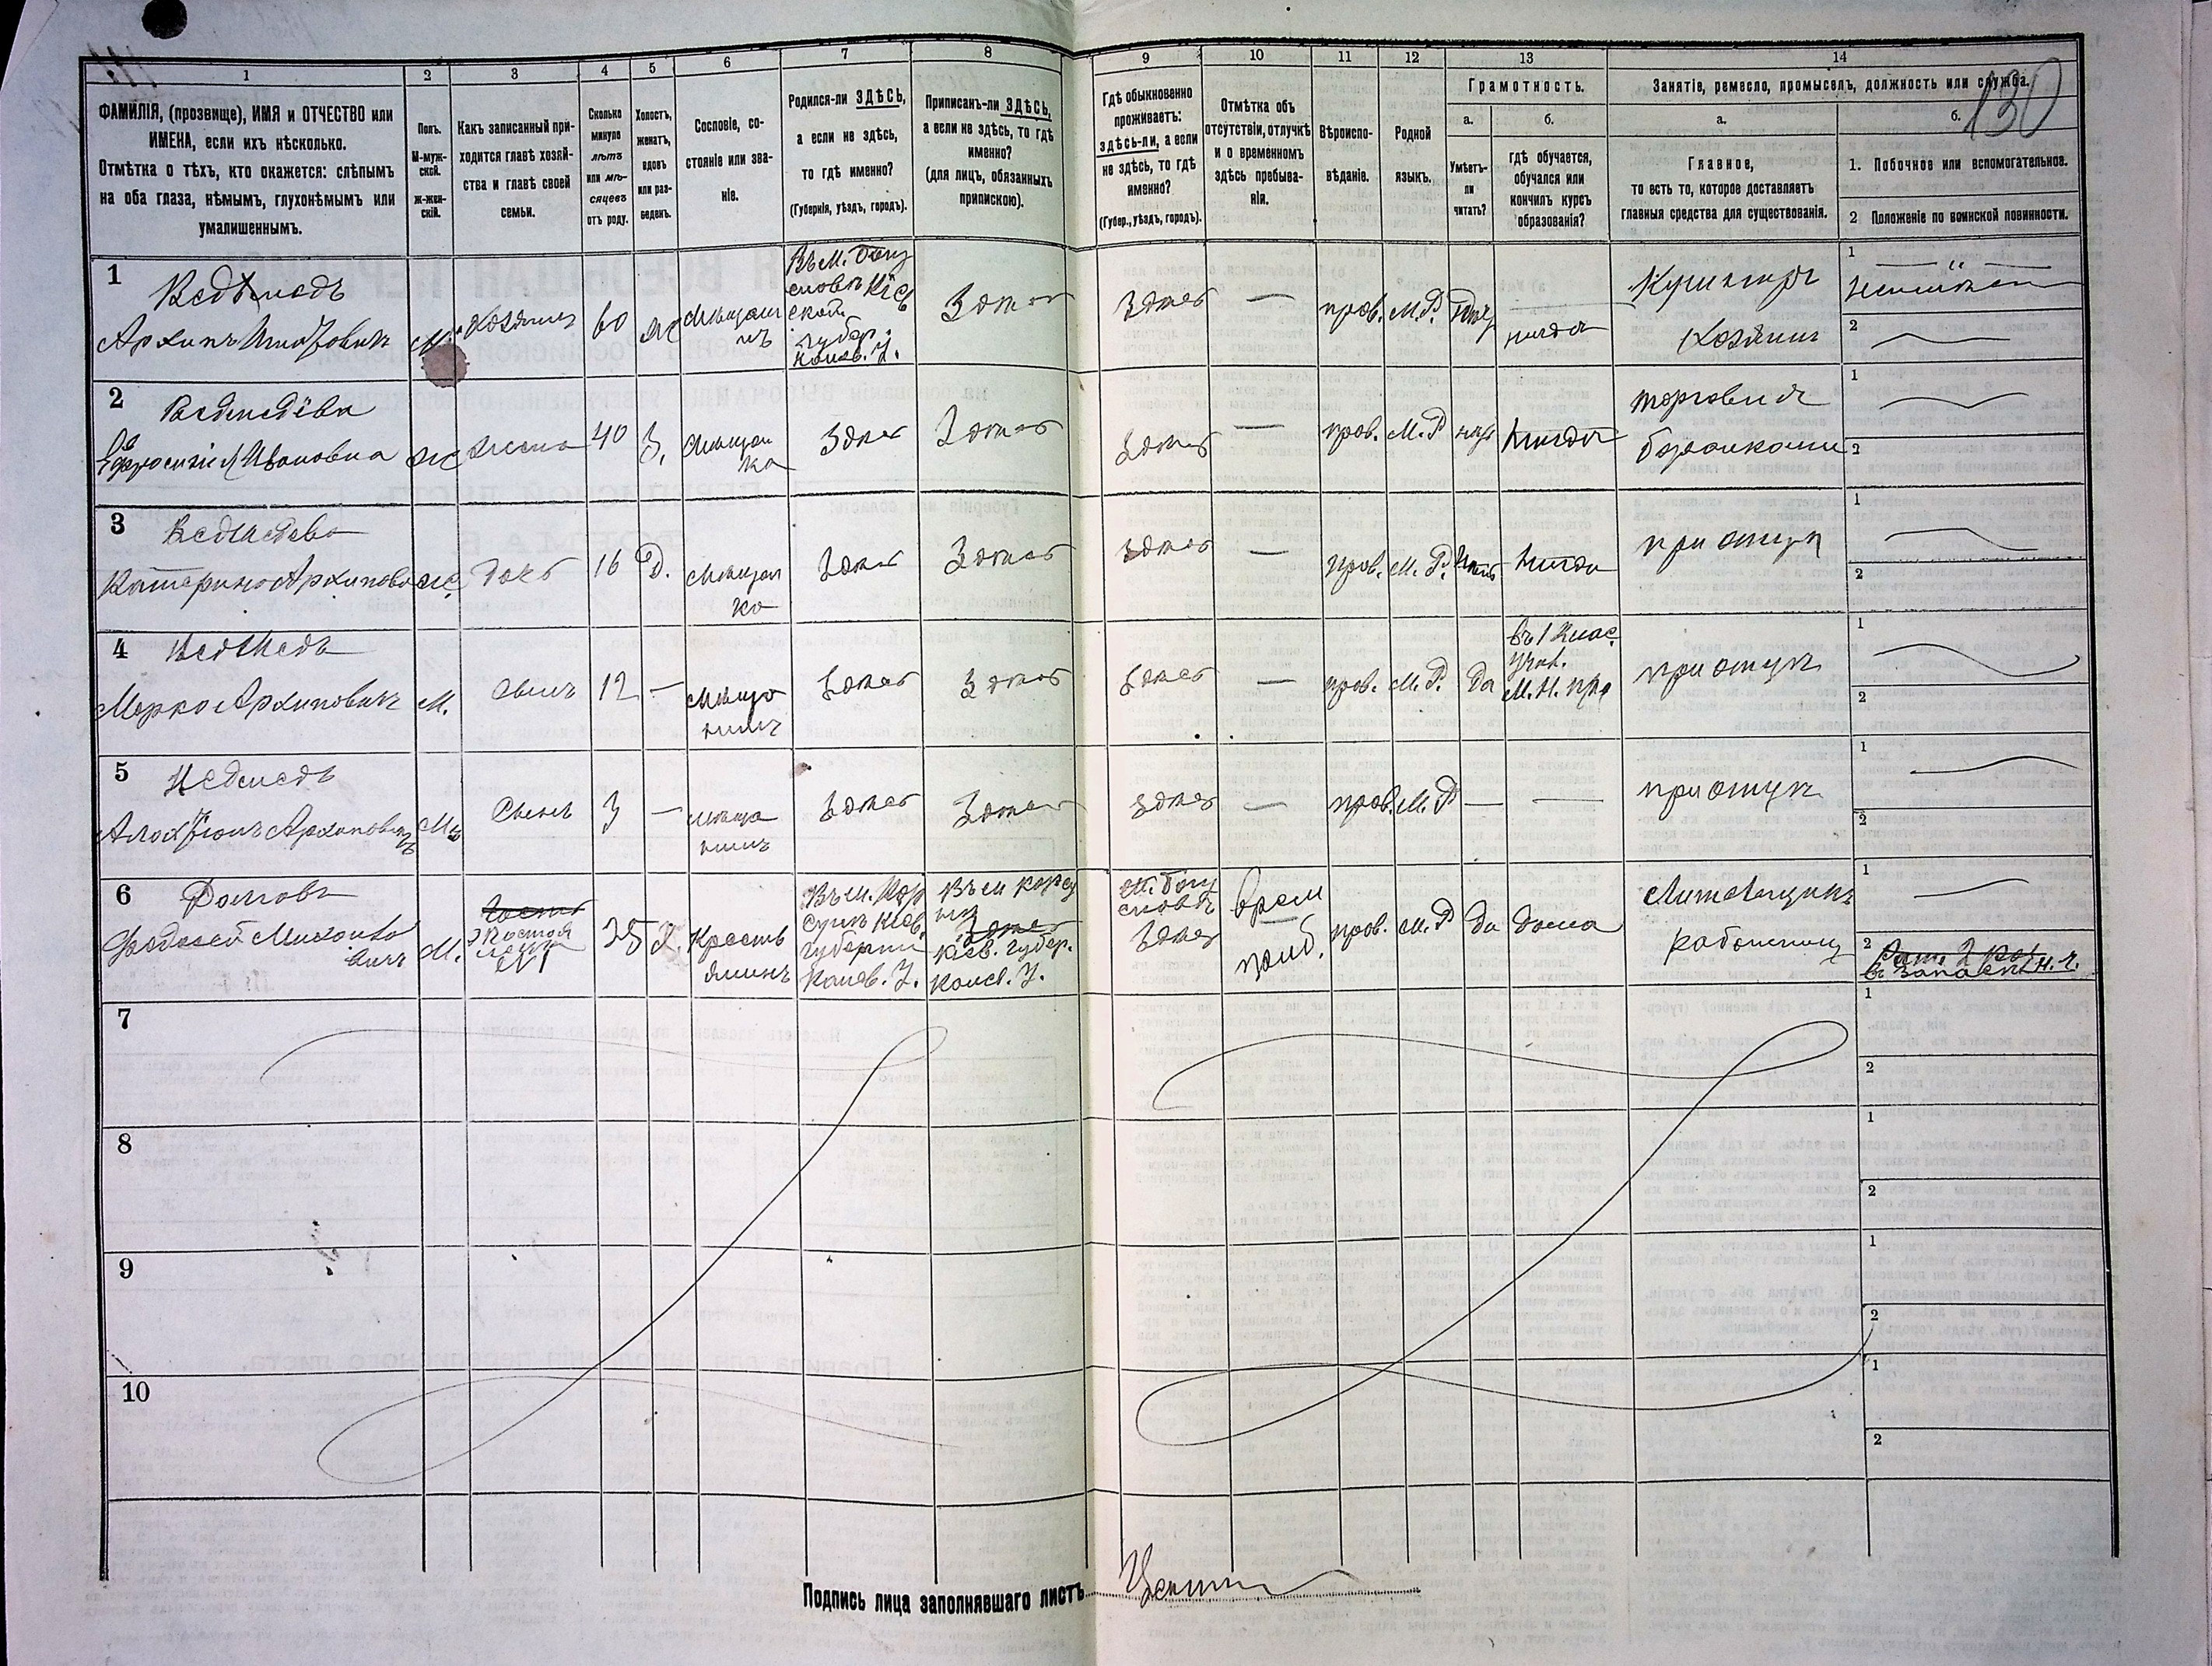 130
1 2 3 4 5 6 7 8 9 10 11 12 13 14
ФАМИЛІЯ, (прозвище), ИМЯ и ОТЧЕСТВО или
ИМЕНА, если ихъ нѣсколько.
Отмѣтка о тѣхъ, кто окажется: слѣпымъ
на оба глаза, нѣмымъ, глухонѣмымъ или
умалишеннымъ.
Полъ.
М-муж-
ской.
ж-жен-
скій.
Какъ записанный при-
ходится главѣ хозяй-
ства и главѣ своей
семьи.
Сколько
минуло
лѣтъ
или мѣ-
сяцевъ
отъ роду.
Холостъ,
женатъ,
вдовъ
или раз-
веденъ.
Сословіе, со-
стояніе или зва-
ніе.
Родился-ли ЗДѢСЬ,
а если не здѣсь,
то гдѣ именно?
(Губернія, уѣздъ, городъ).
Приписанъ-ли ЗДѢСЬ,
а если не здѣсь, то гдѣ
именно?
(для лицъ, обязанныхъ
припискою).
Гдѣ обыкновенно
проживаетъ:
здѣсь-ли, а если
не здѣсь, то гдѣ
именно?
(Губер., уѣздъ, городъ).
Отмѣтка объ
отсутствіи, отлучкѣ
и о временномъ
здѣсь пребыва-
ніи.
Вѣроиспо-
вѣданіе.
Родной
языкъ.
Грамотность.
а.
Умѣетъ-
ли
читать?
б.
гдѣ обучается,
обучался или
кончилъ курсъ
образованія?
Занятіе, ремесло, промыселъ, должность или служба.
а.
Главное,
то есть то, которое доставляетъ
главныя средства для существованія.
б.
1. Побочное или вспомогательное.
2 Положеніе по воинской повинности.
1
Ведмедъ
Архипъ
М.
Хозяинъ
60
Ж
Мѣщани
нъ
Въ М. Богу
славѣ Кіев
ской
губер.
Канев. У.
Здѣсь
Здѣсь
—
прав.
М. Р.
нѣтъ
нигдѣ
Хозяинъ
1
2
2
Ведмедева
Ефросинія Ивановна
Ж
Жена
40
З.
Мѣщан
ка
Здѣсь
Здѣсь
Здѣсь
—
прав.
М. Р
нѣтъ
нигдѣ
торговля
бубликами
1
2
3
Ведмедева
Катерина Архипова
Ж
Дочь
16
Д.
Мѣщан
ка
Здѣсь
Здѣсь
Здѣсь
—
прав.
М. Р.
нѣтъ
нигдѣ
при отцѣ
1
2
4
Ведмедь
Марко Архиповичъ
М.
Сынъ
12
—
Мѣща
нинъ
Здѣсь
Здѣсь
Здѣсь
—
прав.
М. Р.
да
въ 1 Клас.
учил.
М. Н. Пр.
при отцѣ
1
2
5
Ведмедь
Архиповичъ
М.
Сынъ
3
—
Мѣща
нинъ
Здѣсь
Здѣсь
Здѣсь
—
прав.
М. Р
—
—
при отцѣ
1
2
6
Федосей
М.
25
Х.
Кресть
янинъ
Въ м. Кор
сунѣ Кіев.
губерніи
Канев. У.
Въ м Корсу
нѣ
Здѣсь
Кіев. губер.
Канев. У.
м. Богу
славъ
Здѣсь
врем
преб.
прав.
М. Р
да
дома
работникъ
1
2
въ запасѣ
7
1
2
8
1
2
9
1
2
10
1
2
Подпись лица заполнявшаго листъ